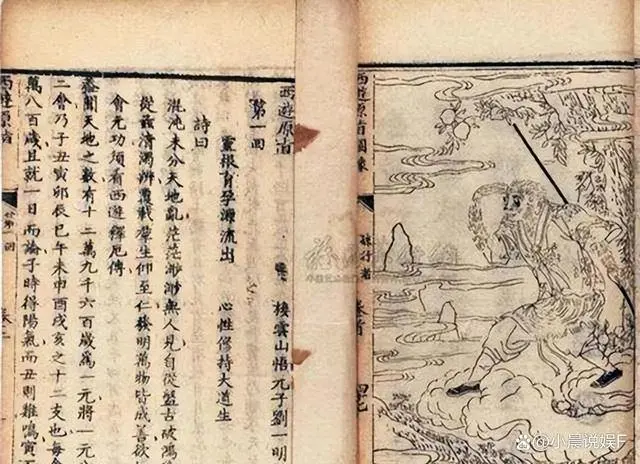 孫行者
西遊原旨圖像
卷首
西遊原旨
第一回
棲雲山悟元子劉一明
靈根育孕源流出 心性修持大道生
詩曰
混沌未分天地亂茫茫渺渺無人見自從盤古破鴻
從茲清濁辨覆載羣生仰至仁發明萬物皆成善欲
會元功須看西遊釋厄傳
蓋聞天地之數有十二萬九千六百歲爲一元將一元分
二會乃子丑寅卯辰巳午未申酉戌亥之十二支也每會
萬八百歲且就一日而論子時得陽氣而丑則雞鳴寅
西遊原旨
第一回
@小晨说娱F